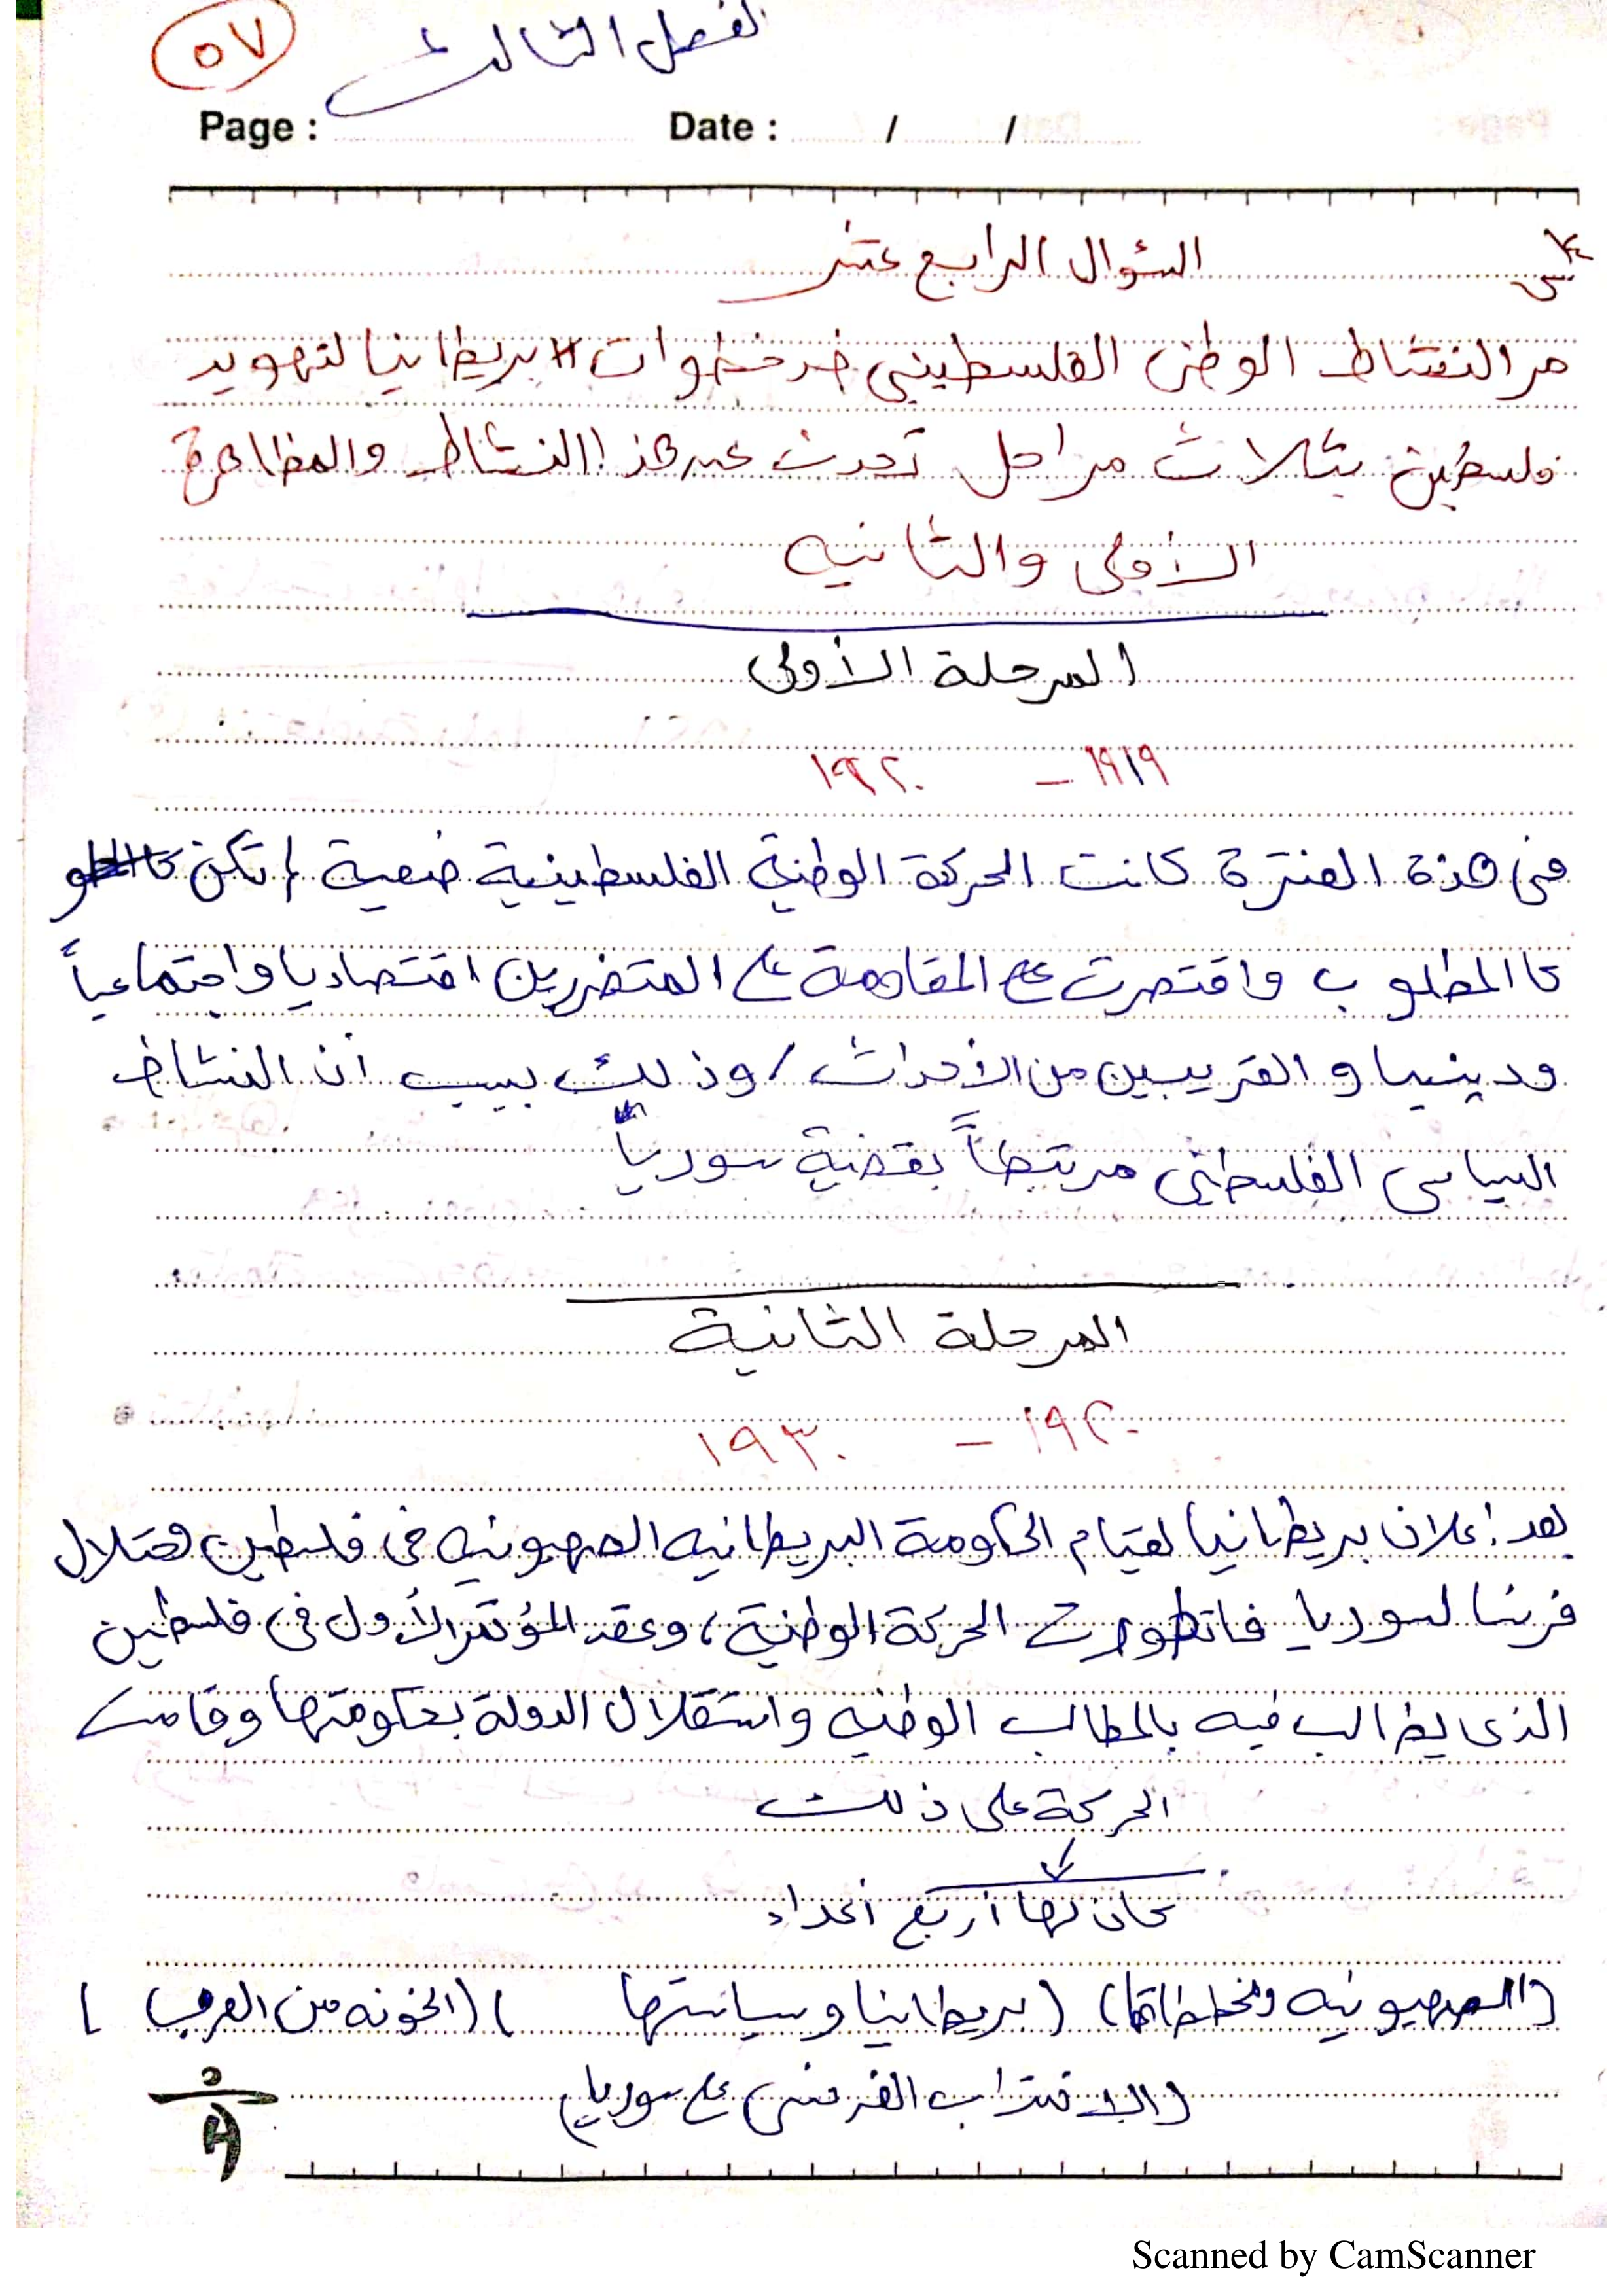 الفصل الثالث
٥٧
Page : Date : / /
السؤال الرابع عشر
مر النشاط الوطنى الفلسطيني ضد خطوات بريطانيا لتهويد
فلسطين بثلاث مراحل تحدث عن هذا النشاط والمظاهرة
الأولى والثانيه
المرحلة الأولى
١٩١٩ - ١٩٢٠
فى هذة الفترة كانت الحركة الوطنية الفلسطينية ضعية لم تكن
كا المطلوب واقتصرت على المقاومة على المتضررين اقتصاديا واجتماعياً
ودينيا و القريبين من الأحداث / وذلك بسبب أن النشاط
السياسى الفلسطينى مرتبطاً بقضية سوريا
المرحلة الثانية
١٩٢٠ - ١٩٣٠
بعد إعلان بريطانيا لقيام الحكومة البريطانيه الصهيونيه فى فلسطين
فرنسا لسوريا فاتطورت الحركة الوطنية، وعقد المؤتمر الأول فى فلسطين
الذى يطالب فيه بالمطالب الوطنيه واستقلال الدولة بحكومتها وقامت
الحركة على ذلك
كان لها أربع أعداء
(الصهيونيه ومخططاتها) (بريطانيا وسياستها ) (الخونه من العرب )
(الانتداب الفرنسى على سوريا)
Scanned by CamScanner